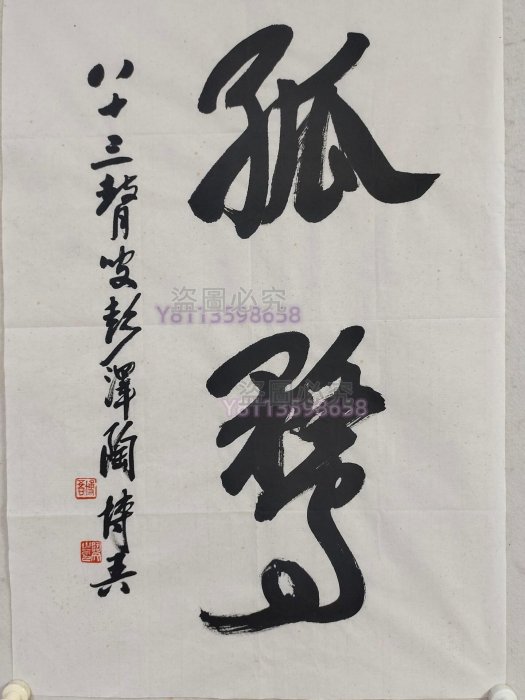 孤鶩
八十三瞽叟彭澤陶博吾
盜圖必究
Y6113598658
盜圖必究
Y6113598658